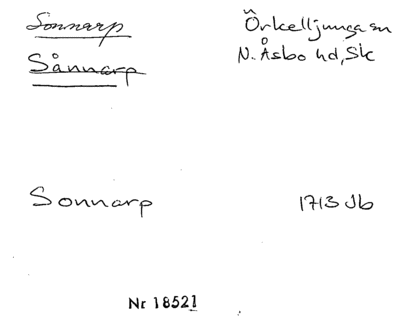 Sonnarp
Örkelljunga sn
Sånnarp
N. Åsbo hd, Sk
Sonnarp
1713 Jb
Nr 18521